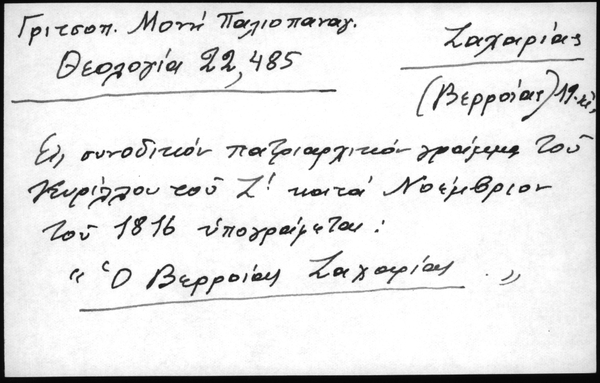 Γριτσοπ. Μονή Παλιοπαναγ.
Θεολογία 22, 485
Ζαχαρίας
(Βερροίας) 19. αἰ.
Εἰς συνοδικόν πατριαρχικόν γράμμα τοῦ
Κυρίλλου τοῦ Ζ! κατά Νοέμβριον
τοῦ 1816 ὑπογράφεται:
"Ὁ Βερροίας Ζαχαρίας."